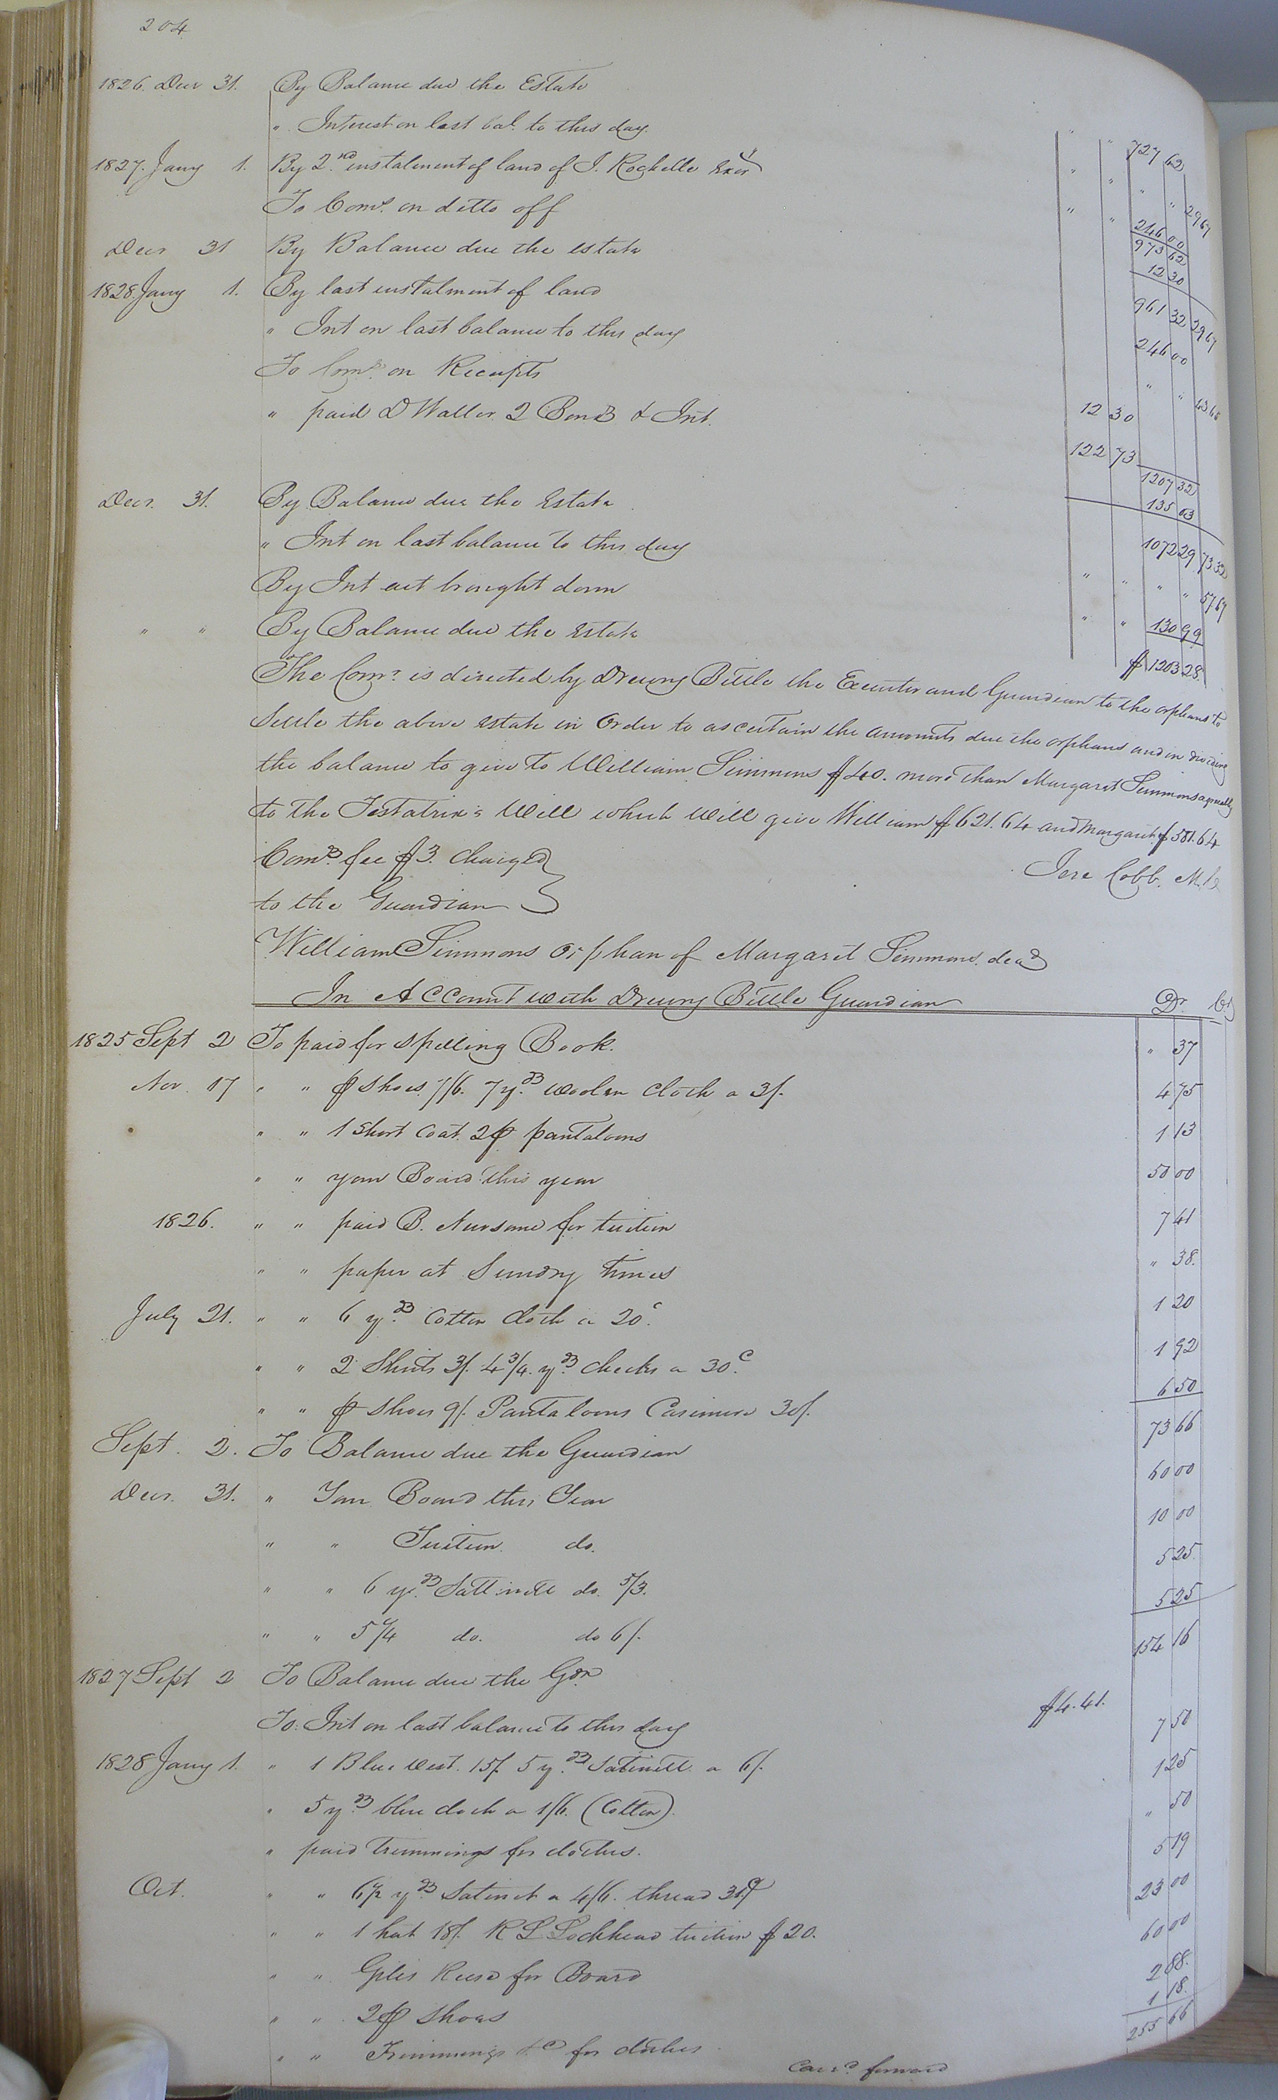 204
1826. Decr 31. By Balance due the Estate " " 727 62
" Interest on last bal. to this day. " " " " 29 67
1827. Jany 1. By 2nd instalment of land of J. Rochelle Exor " " 246 00
973 62
To Coms. on ditto off 12 30
Decr 31 By Balance due the estate 961 32 29 67
1828 Jany 1. By last instalment of land 246 00
" Int on last balance to this day " "
To Coms. on Receipts 12 30
" paid D Waller 2 Bonds & Int. 122 73
1207 32
135 03
Decr. 31. By Balance due the Estate 1072 29 73 32
" Int on last balance to this day " " " " 57 67
By Int act brought down " " 130 99
" " By Balance due the Estate $1203 28
The Comr. is directed by Drewry Bittle the Executor and Guardian to the orphans to
Settle the above estate in Order to ascertain the amounts due the orphans and in dividing
the balance to give to William Simmons $40. more than Margaret Simmons agreeably
to the Testatrix's Will which will give William $621.64 and Margaret $581.64
Coms. fee $3. charged Jere Cobb. M.C
to the Guardian
William Simmons Orphan of Margaret Simmons decd
In Account with Drewry Bittle Guardian Dr. Cr
1825 Sept 2 To paid for Spelling Book. " 37
Nov. 17 " " p Shoes 7/6. 7 yds. woolen cloth a 3/. 4 75
" " 1 Short Coat. 2 p pantaloons 1 13
" " your Board this year 50 00
1826. " " paid B. Newsome for tuition 7 41
" " paper at Sundry times " 38.
July 21. " " 6 yds. Cotton cloth a 20c. 1 20
" " 2 Shirts 3/. 4 3/4. yds. checks a 30c. 1 92
" " p Shoes 9/. Pantaloons Casimere 30/. 6 50
Sept. 2. To Balance due the Guardian 73 66
Decr. 31. " Your Board this Year 60 00
" " Tuition do. 10 00
" " 6 yds. Sattinett do. 5/3. 5 25.
" " 5 1/4 do. do 6/. 5 25
1827 Sept 2 To Balance due the Gdn 154 16
To. Int on last balance to this day $4.41.
1828 Jany 1. " 1 Blue vest. 15/. 5 yds. Satinett a 6/. 7 50
" 5 yds blue cloth a 1/6. (Cotton). 1 25
" paid trimmings for clothes. " 50
Oct. " " 6 1/2 yds Satinet a 4/6. thread 5 19
" " 1 hat 18/. R L Lockhead tuition $20. 23 00
" " Giles Reese for Board 60 00
" " 2 p Shoes 2 88.
" " Trimmings &c for clothes 1 18.
255 66
Carrd. forward